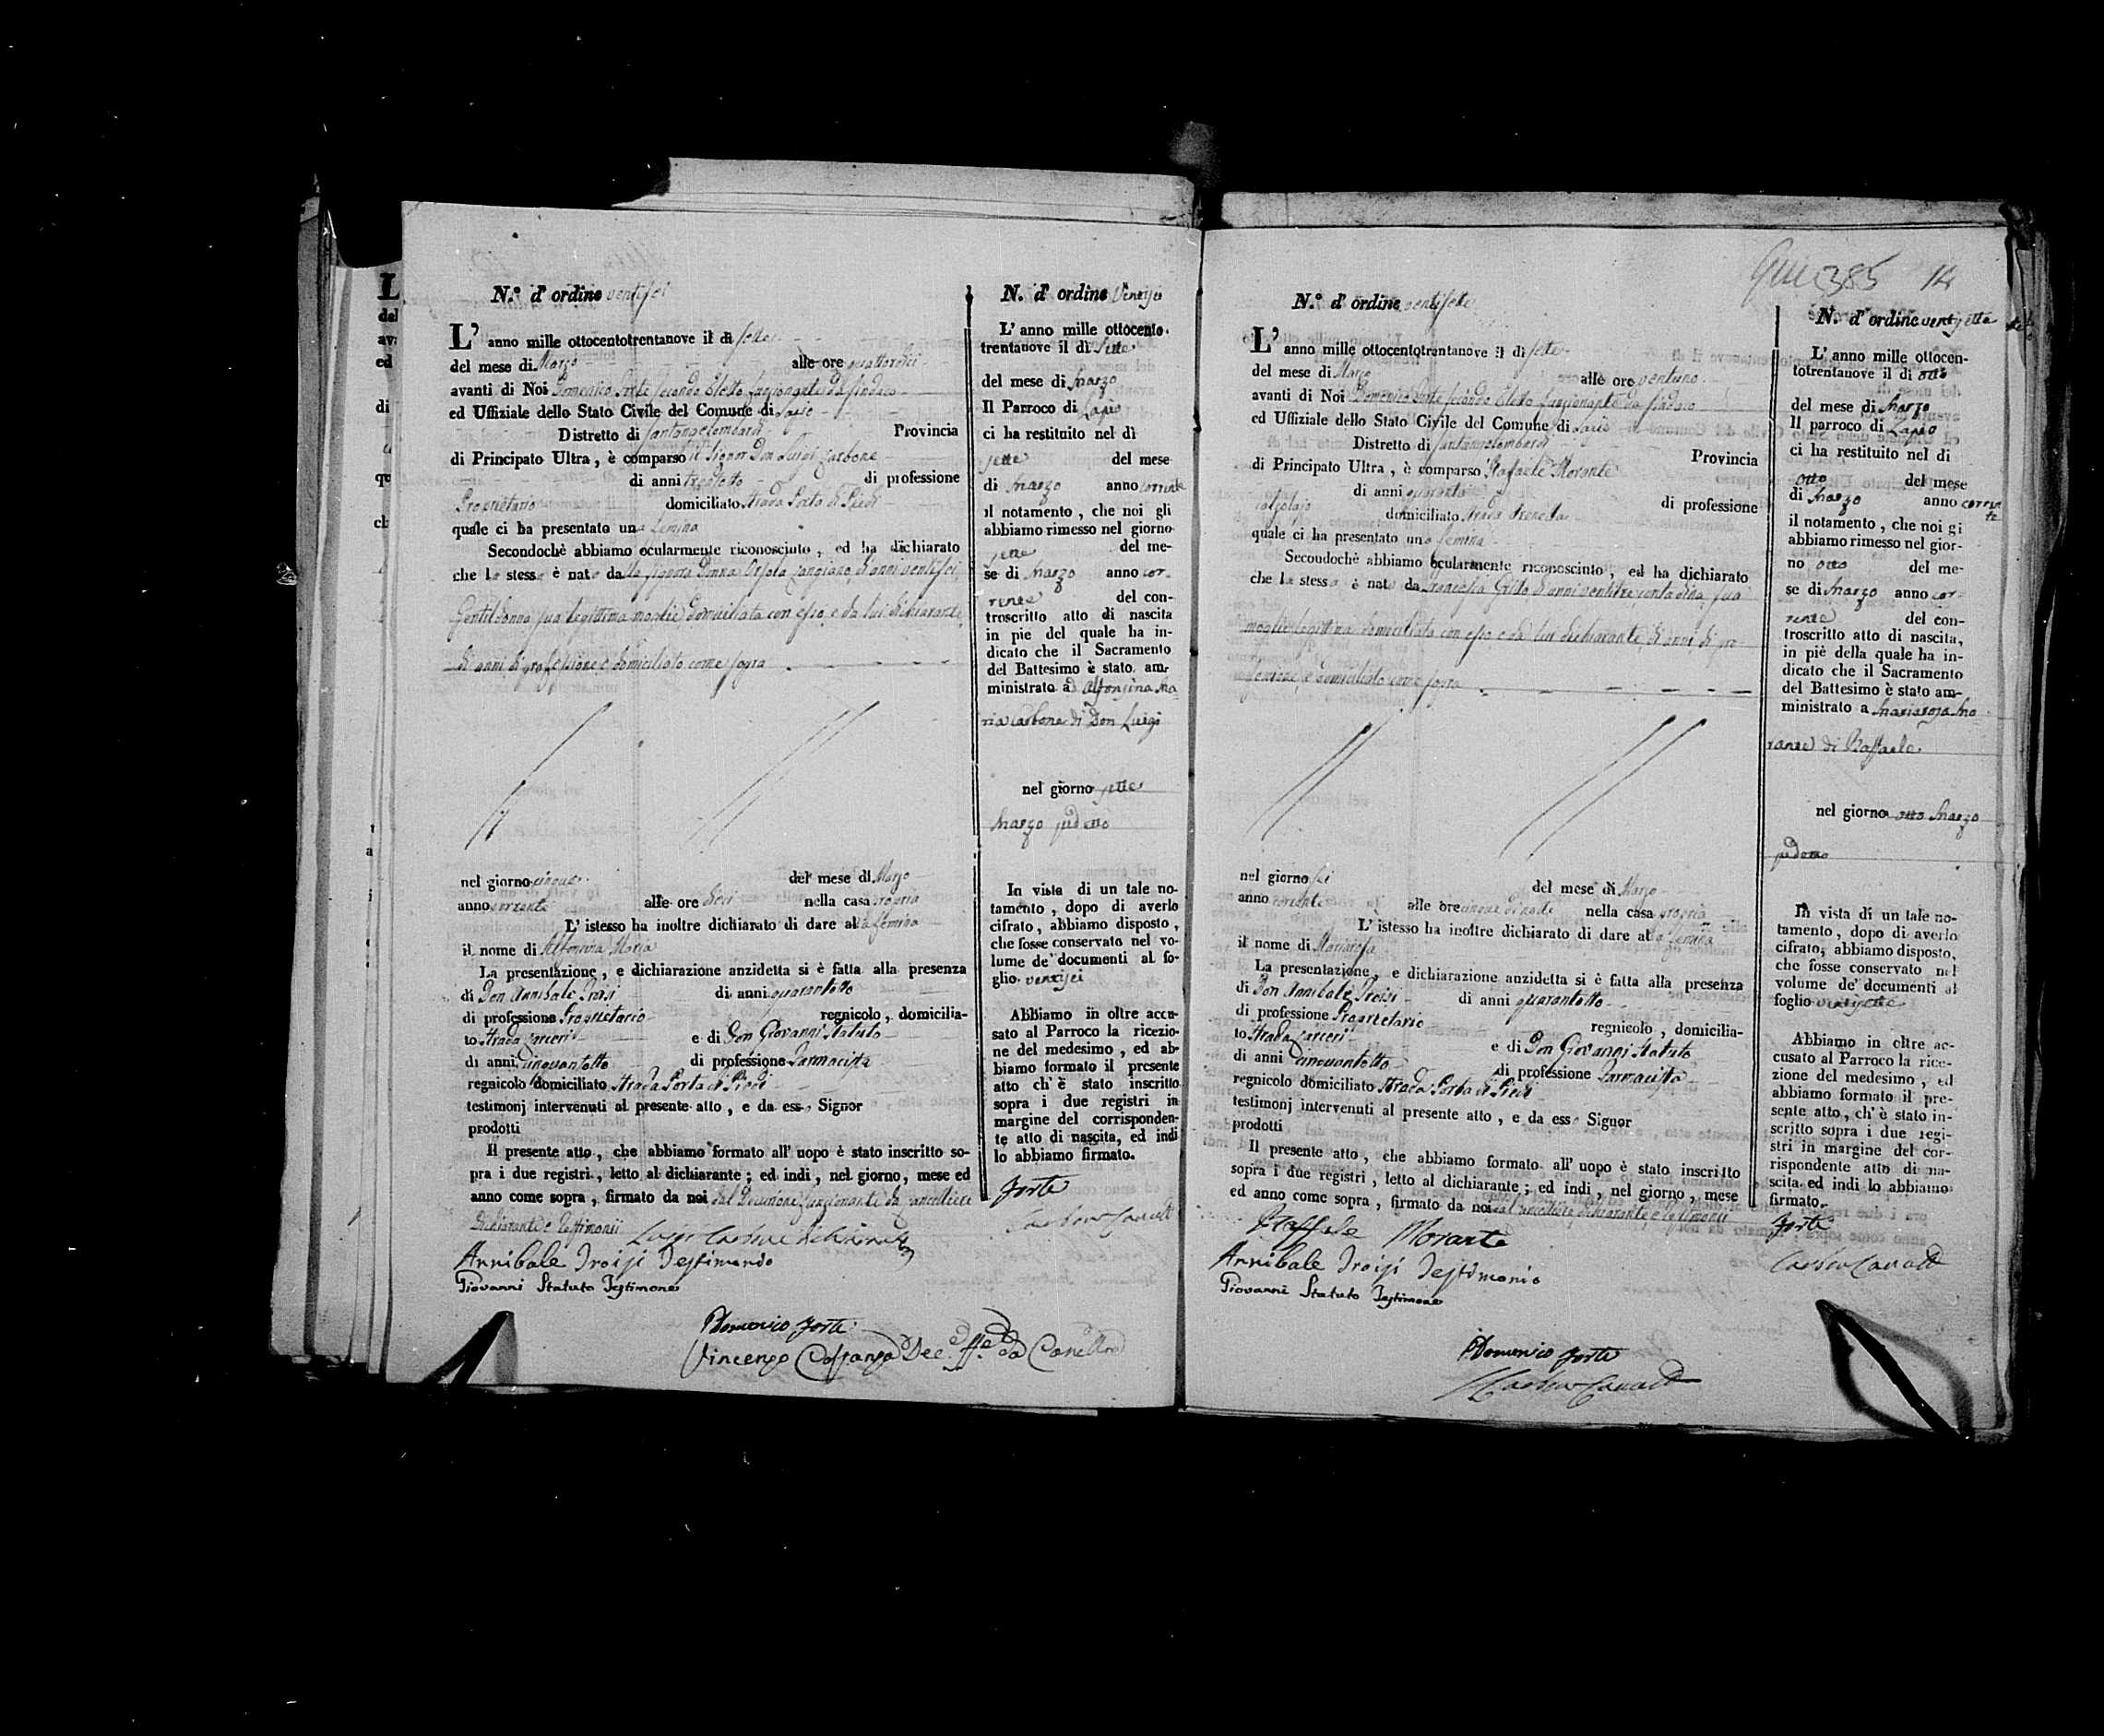 N.° d' ordine ventisei
L' anno mille ottocentotrentanove il dì sette
del mese di Marzo alle ore quattordici
avanti di Noi Domenico Forte secondo Eletto funzionante da Sindaco
ed Uffiziale dello Stato Civile del Comune di Lapio
Distretto di Santangelolombardi Provincia
di Principato Ultra, è comparso il Signor Don Luigi Carbone
di anni trentotto di professione
Proprietario domiciliato Strada Porta di Piedi
quale ci ha presentato una femina
Secondochè abbiamo ocularmente riconosciuto, ed ha dichiarato
che la stessa è nata dalla Signora Donna Orsola Cangiano, di anni ventisei,
Gentildonna sua legittima moglie domiciliata con esso, e da lui dichiarante,
di anni, di professione, e domiciliato come sopra
nel giorno cinque del mese di Marzo
anno corrente alle ore dieci nella casa propria
L' istesso ha inoltre dichiarato di dare alla femina
il nome di Alfonsina Maria
La presentazione, e dichiarazione anzidetta si è fatta alla presenza
di Don Annibale Troisi di anni quarantotto
di professione Proprietario regnicolo, domicilia-
to Strada Carceri e di Don Giovanni Statuto
di anni cinquantotto di professione Farmacista
regnicolo domiciliato Strada Porta di Piedi
testimonj intervenuti al presente atto, e da esso Signor
prodotti
Il presente atto, che abbiamo formato all' uopo è stato inscritto so-
pra i due registri, letto al dichiarante; ed indi, nel giorno, mese ed
anno come sopra, firmato da noi dal Decurione funzionante da Cancelliere
Dichiarante e Testimonii Luigi Carbone dichiarante
Annibale Troisi Testimonio
Giovanni Statuto Testimone
Domenico Forte
Vincenzo Dec.
N. d' ordine Ventisei
L' anno mille ottocento-
trentanove il dì Sette
del mese di Marzo
Il Parroco di Lapio
ci ha restituito nel dì
sette del mese
di Marzo anno corrente
il notamento, che noi gli
abbiamo rimesso nel giorno
sette del me-
se di Marzo anno cor-
rente del con-
troscritto atto di nascita
in piè del quale ha in-
dicato che il Sacramento
del Battesimo è stato am-
ministrato ad Alfonsina Ma-
ria Carbone di Don Luigi
nel giorno sette
Marzo suddetto
In vista di un tale no-
tamento, dopo di averlo
cifrato, abbiamo disposto,
che fosse conservato nel vo-
lume de' documenti al fo-
glio ventisei
Abbiamo in oltre accu-
sato al Parroco la ricezio-
ne del medesimo, ed ab-
biamo formato il presente
atto ch' è stato inscritto
sopra i due registri in
margine del corrisponden-
te atto di nascita, ed indi
lo abbiamo firmato.
Forte
385 14
N.° d' ordine ventisette
L' anno mille ottocentotrentanove il dì sette
del mese di Marzo alle ore ventuno
avanti di Noi Domenico Forte secondo Eletto funzionante da Sindaco
ed Uffiziale dello Stato Civile del Comune di Lapio
Distretto di Santangelolombardi Provincia
di Principato Ultra, è comparso Raffaele Morante
di anni quaranta di professione
calzolajo domiciliato strada
quale ci ha presentato una femina
Secondochè abbiamo ocularmente riconosciuto, ed ha dichiarato
che la stessa è nata da di anni ventitre, contadina, sua
moglie legittima domiciliata con esso, e da lui dichiarante, di anni, di pro
fessione, e domiciliato come sopra
nel giorno sei del mese di Marzo
anno corrente alle ore cinque di notte nella casa propria
L' istesso ha inoltre dichiarato di dare alla femina
il nome di Mariarosa
La presentazione, e dichiarazione anzidetta si è fatta alla presenza
di Don Annibale Troisi di anni quarantotto
di professione Proprietario regnicolo, domicilia-
to Strada Carceri e di Don Giovanni Statuto
di anni cinquantotto di professione Farmacista
regnicolo domiciliato Strada Porta di Piedi
testimonj intervenuti al presente atto, e da esso Signor
prodotti
Il presente atto, che abbiamo formato all' uopo è stato inscritto
sopra i due registri, letto al dichiarante; ed indi, nel giorno, mese
ed anno come sopra, firmato da noi dal Cancelliere dichiarante, e testimonii
Raffaele Morante
Annibale Troisi Testimonio
Giovanni Statuto Testimone
Domenico Forte
N. d' ordine ventisette
L' anno mille ottocen-
totrentanove il dì otto
del mese di Marzo
Il parroco di Lapio
ci ha restituito nel dì
otto del mese
di Marzo anno corren
te
il notamento, che noi gi
abbiamo rimesso nel gior-
no otto del me-
se di Marzo anno cor-
rente del con-
troscritto atto di nascita,
in piè della quale ha in-
dicato che il Sacramento
del Battesimo è stato am-
ministrato a Mariarosa Mo
rante di Raffaele
nel giorno otto Marzo
suddetto
In vista di un tale no-
tamento, dopo di averlo
cifrato, abbiamo disposto,
che fosse conservato nel
volume de' documenti al
foglio ventisette
Abbiamo in oltre ac-
cusato al Parroco la rice-
zione del medesimo, ed
abbiamo formato il pre-
sente atto, ch' è stato in-
scritto sopra i due regi-
stri in margine del cor-
rispondente atto di na-
scita ed indi lo abbiamo
firmato.
Forte